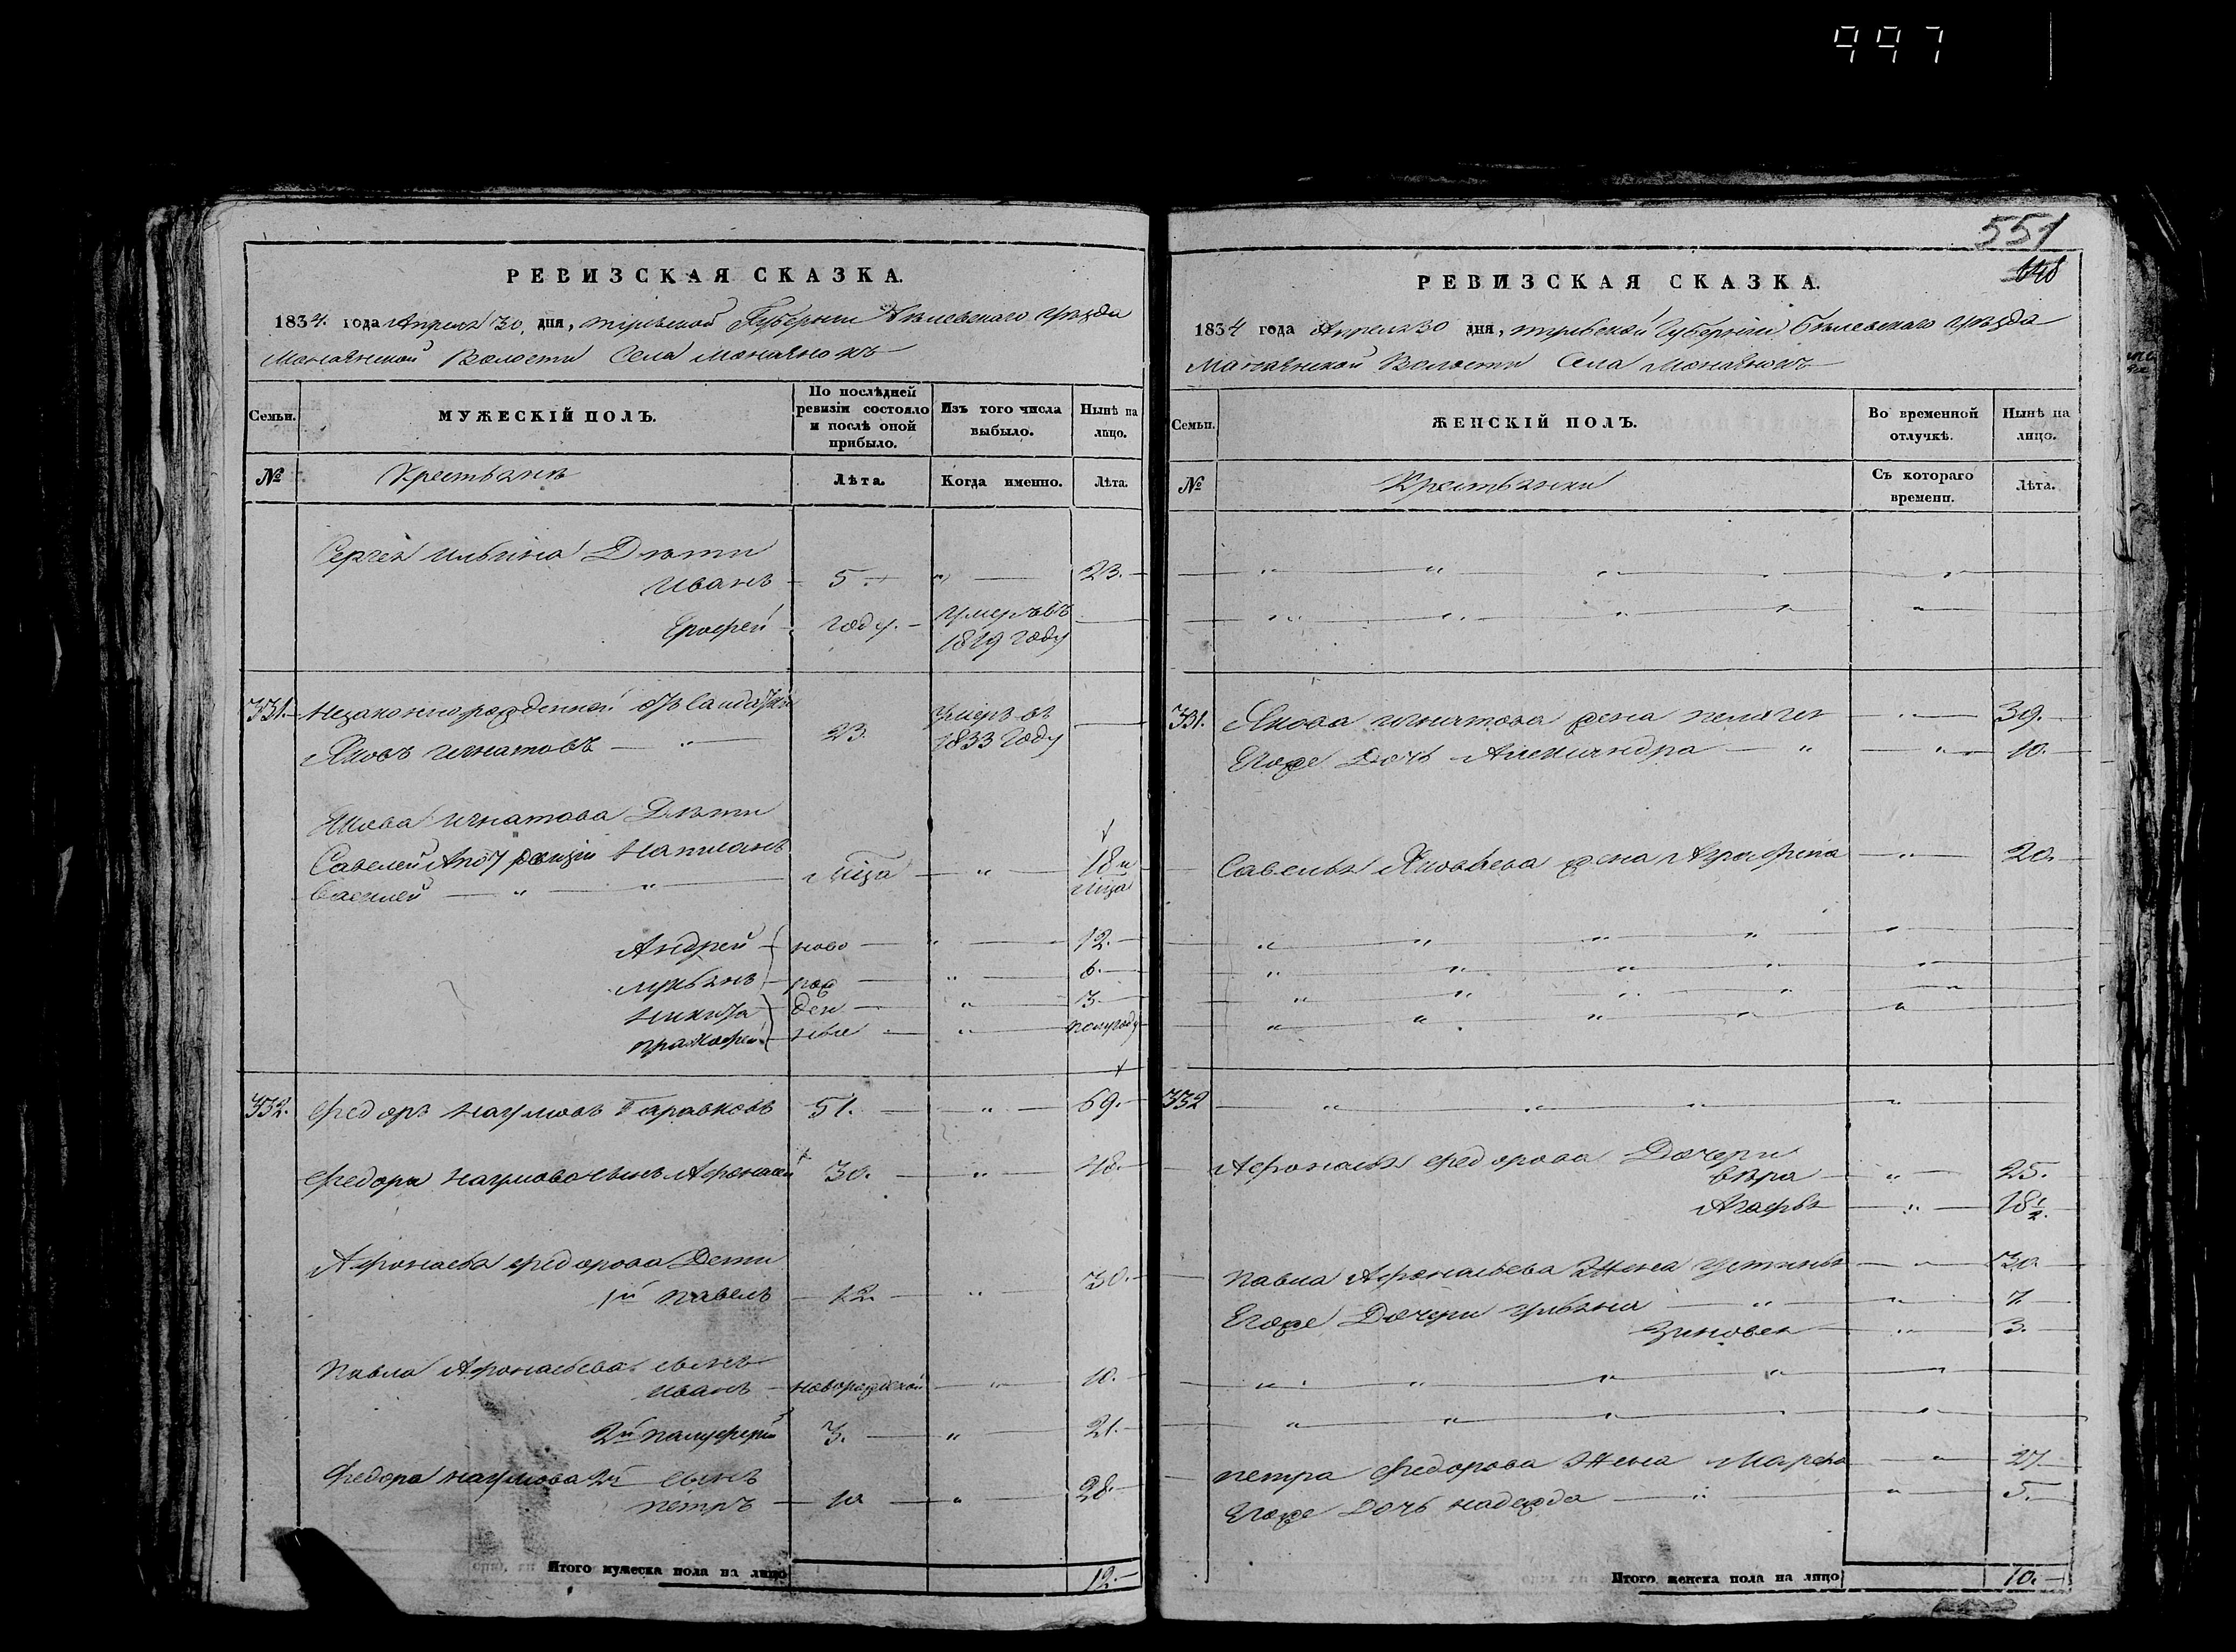 997
РЕВИЗСКАЯ СКАЗКА.
1834. года Апреля 30, дня, Губернии Белевскаго уезда
Волости Села
Семьи. МУЖЕСКІЙ ПОЛЪ. По послѣдней ревизіи состояло и послѣ оной прибыло. Изъ того числа выбыло. Нынѣ на лицо.
№ Крестьяне Лѣта. Когда именно. Лѣта.
Сергея Ильина Дети
Иванъ 5. „ 23.
Ерофей году. умеръ въ 1819 году
331. Незаконнорожденной отъ салдатки
Яковъ Игнатовъ 23. умеръ въ 1833 году
Якова Игнатова Дети
Савелей
18 и
Василей „ „
Андрей ново „ 12.
Лукьянъ рож „ 6.
Никита ден „ 3
ные „ полугоду
332. Федоръ Наумовъ 51. „ 69.
Федора Наумова сынъ Афонасей 30. „ 48.
Афонасья Федорова Дети
1й Павелъ 12. „ 30.
Павла Афонасьева сынъ
Иванъ новорожденной „ 10.
2й 3. „ 21.
Федора Наумова 2й сынъ
Петръ 10 „ 28.
Итого мужеска пола на лицо 12.
551
РЕВИЗСКАЯ СКАЗКА.
1834 года Апреля 30 дня, Губернии Белевскаго уезда
Волости Села
Семьи. ЖЕНСКІЙ ПОЛЪ. Во временной отлучкѣ. Нынѣ на лицо.
№ Крестьянки Съ котораго времени. Лѣта.
„ „ „ „ „
„ „ „ „ „
331. Якова Игнатова жена Пелагея „ 39.
Егоже Дочь Александра „ „ 10.
Савелья Яковлева жена Аграфена „ 20.
„ „ „ „ „
„ „ „ „ „
„ „ „ „ „
„ „ „ „ „
332 „ „ „ „
Афонасья Федорова Дочери
Вера „ 25.
Агафья „ 18 1/2.
Павла Афонасьева Жена Устинья „ 30
Егоже Дочери Ульяна „ „ 7.
Зиновея „ 3.
„ „ „ „ „
„ „ „ „ „
Петра Федорова Жена Марфа „ 27
Егоже Дочь Надежда „ „ 5.
Итого женска пола на лицо 10.